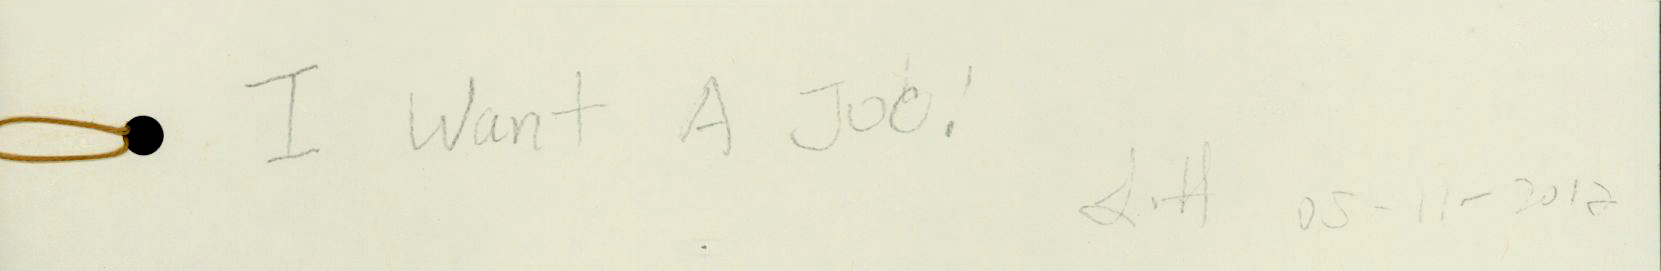 I Want A Job!
L.H 05-11-2012